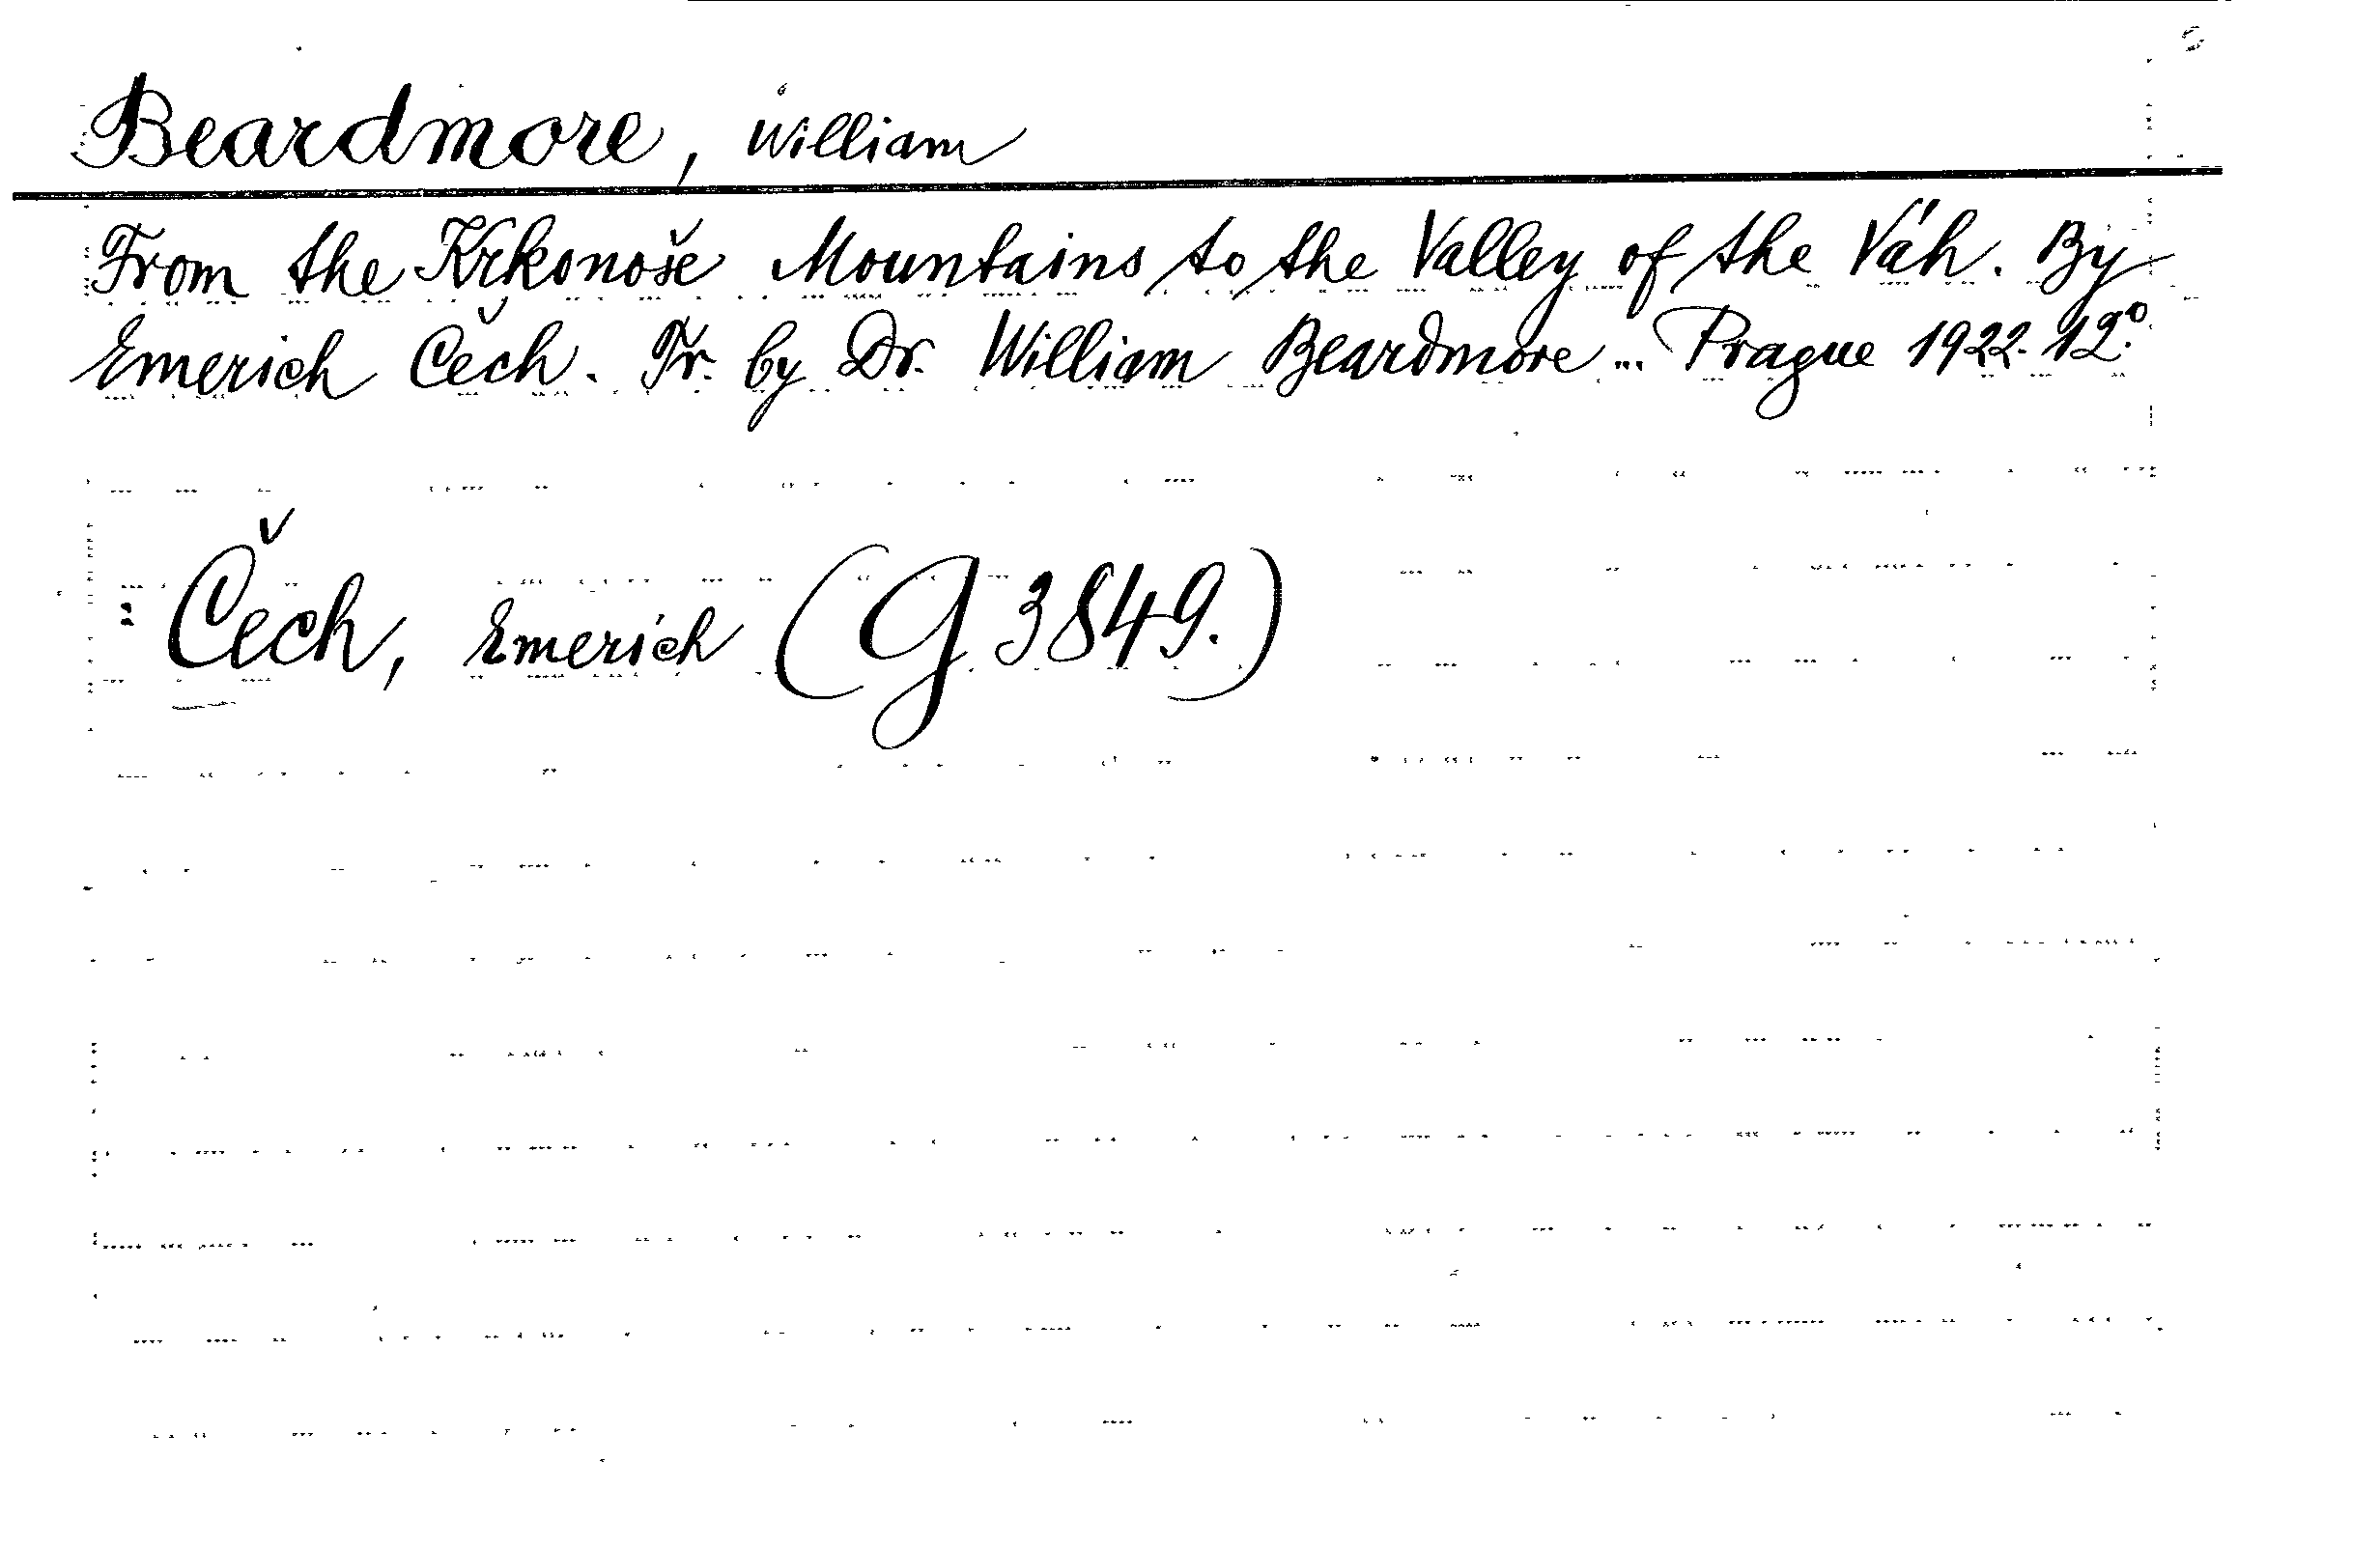 Beardmore, William
From the Krkonoše Mountains to the Valley of the Váh. By
Emerich Čech. Tr. by Dr. William Beardmore... Prague 1922. 12°.
: Čech, Emerich (G 3849.)